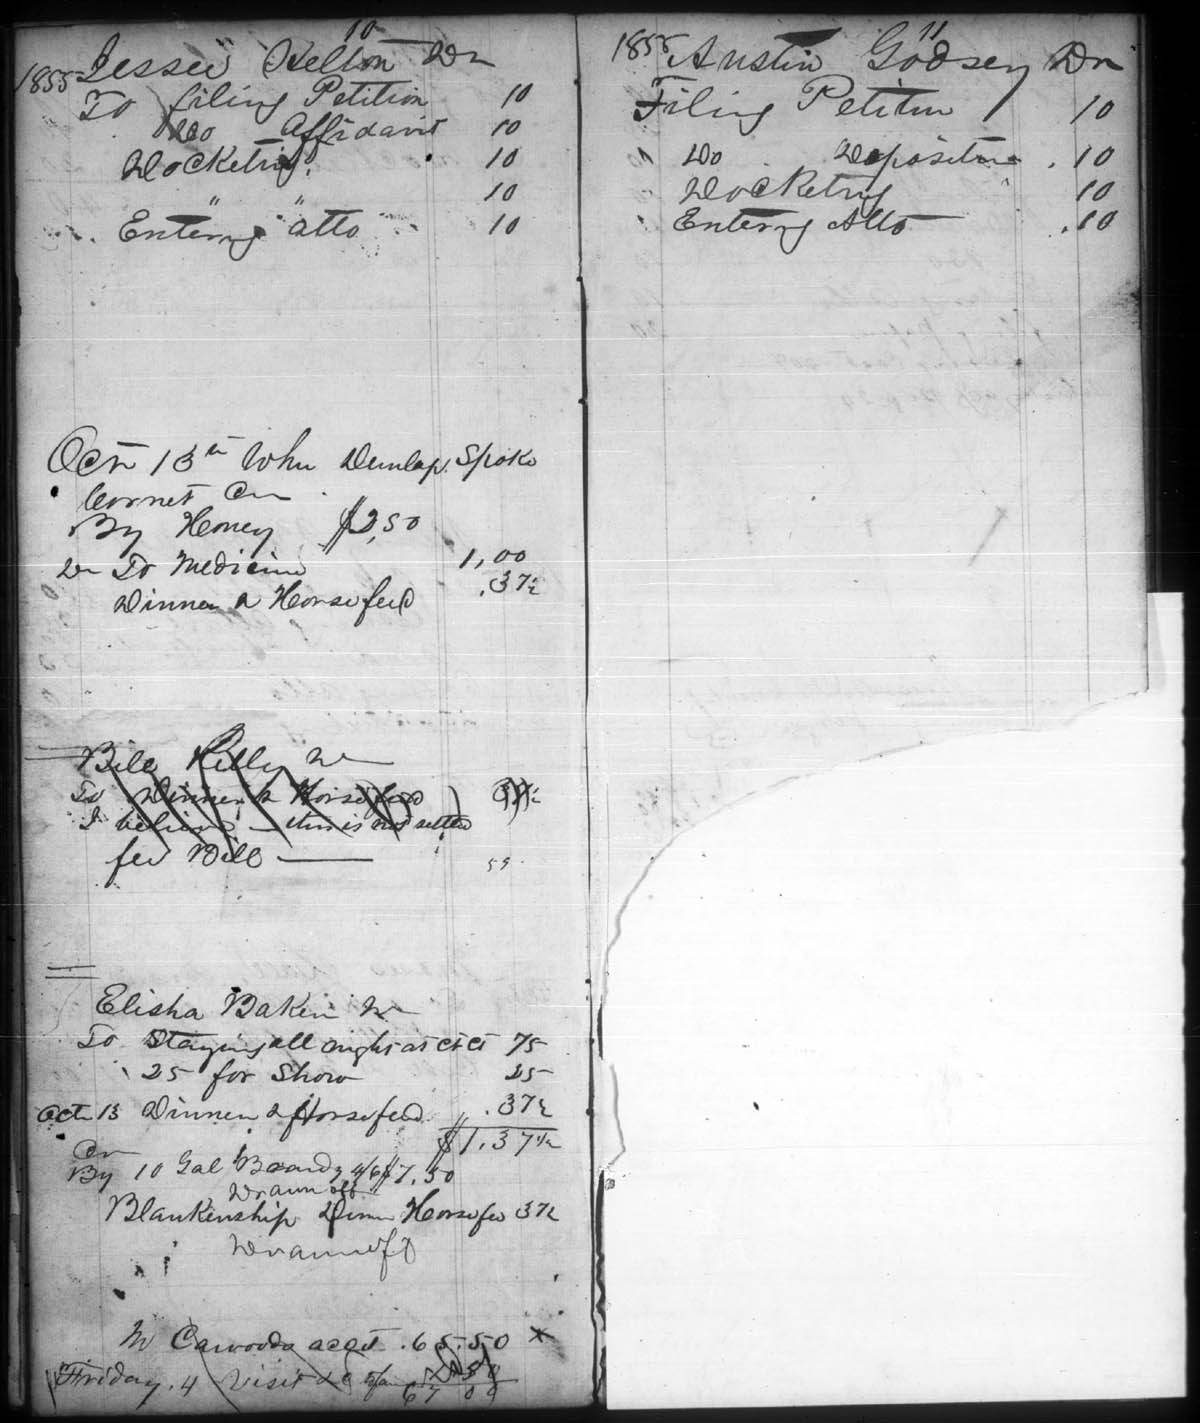 10
1855 Jessee Helton Dr
To filing Petition 10
Do Affidavit 10
Docketing 10
" " 10
Entering atto 10
Octr 13th When Dunlap Spoke
Cornet Cr
By Honey $2,50
Dr To Medicine 1,00
Dinner & Horse feed .37½
Bill Kelly Dr
To Dinner & Horse feed 37½
I believe this is not settled
fee Bill
Elisha Baker Dr
To Staying all night at Ct Ct 75
25 for Show 25
Oct 13 Dinner & Horse feed .37½
$1.37½
Cr
By 10 Gal Brandy 4/6 $7.50
Drawn off
Blankenship Dinn Horse fee 37½
Drawn off
M Cawoods acct .65.50 x
Friday. 4 Visit
67 00
11
1855 Austin Godsey Dr
Filing Petition 10
Do Deposition .10
Docketing 10
Entering Atto .10